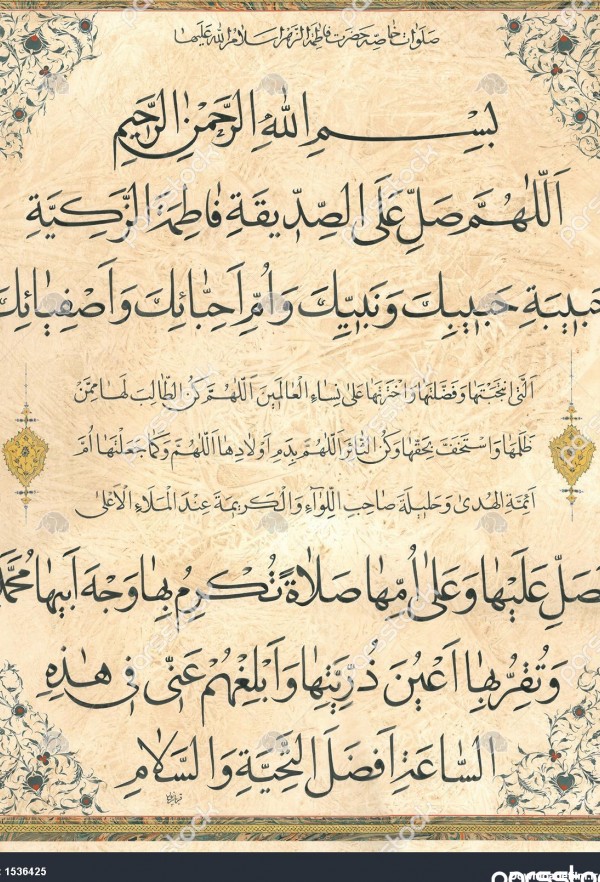 صلوات خاصه حضرت فاطمة الزهرا سلام الله علیها
بِسْمِ اللهِ الرَّحْمٰنِ الرَّحِیمِ
اَللّٰهُمَّ صَلِّ عَلَی الصِّدّیقَةِ فٰاطِمَةَ الزَّکِیَّةِ
حَبیبَةِ حَبیبِكَ وَ نَبِیِّكَ وَ اُمِّ اَحِبّٰائِكَ وَ اَصْفِیٰائِكَ
اَلَّتِی انْتَجَبْتَهٰا وَ فَضَّلْتَهٰا وَ اخْتَرْتَهٰا عَلیٰ نِسٰاءِ الْعٰالَمینَ اَللّٰهُمَّ کُنِ الطّٰالِبَ لَهٰا مِمَّنْ
ظَلَمَهٰا وَ اسْتَخَفَّ بِحَقِّهٰا وَ کُنِ الثّٰائِرَ اَللّٰهُمَّ بِدَمِ اَوْلادِهٰا اَللّٰهُمَّ وَ کَمٰا جَعَلْتَهٰا اُمَّ
اَئِمَّةِ الْهُدیٰ وَ حَلیلَةَ صٰاحِبِ اللِّوٰاءِ وَ الْکَریمَةَ عِنْدَ الْمَلَاءِ الْاَعْلیٰ
فَصَلِّ عَلَیْهٰا وَ عَلیٰ اُمِّهٰا صَلاٰةً تُکْرِمُ بِهٰا وَجْهَ اَبیهٰا مُحَمَّدٍ
وَ تُقِرُّ بِهٰا اَعْیُنَ ذُرِّیَّتِهٰا وَ اَبْلِغْهُمْ عَنّی فی هٰذِهِ
السّٰاعَةِ اَفْضَلَ التَّحِیَّةِ وَ السَّلاٰمِ
1536425